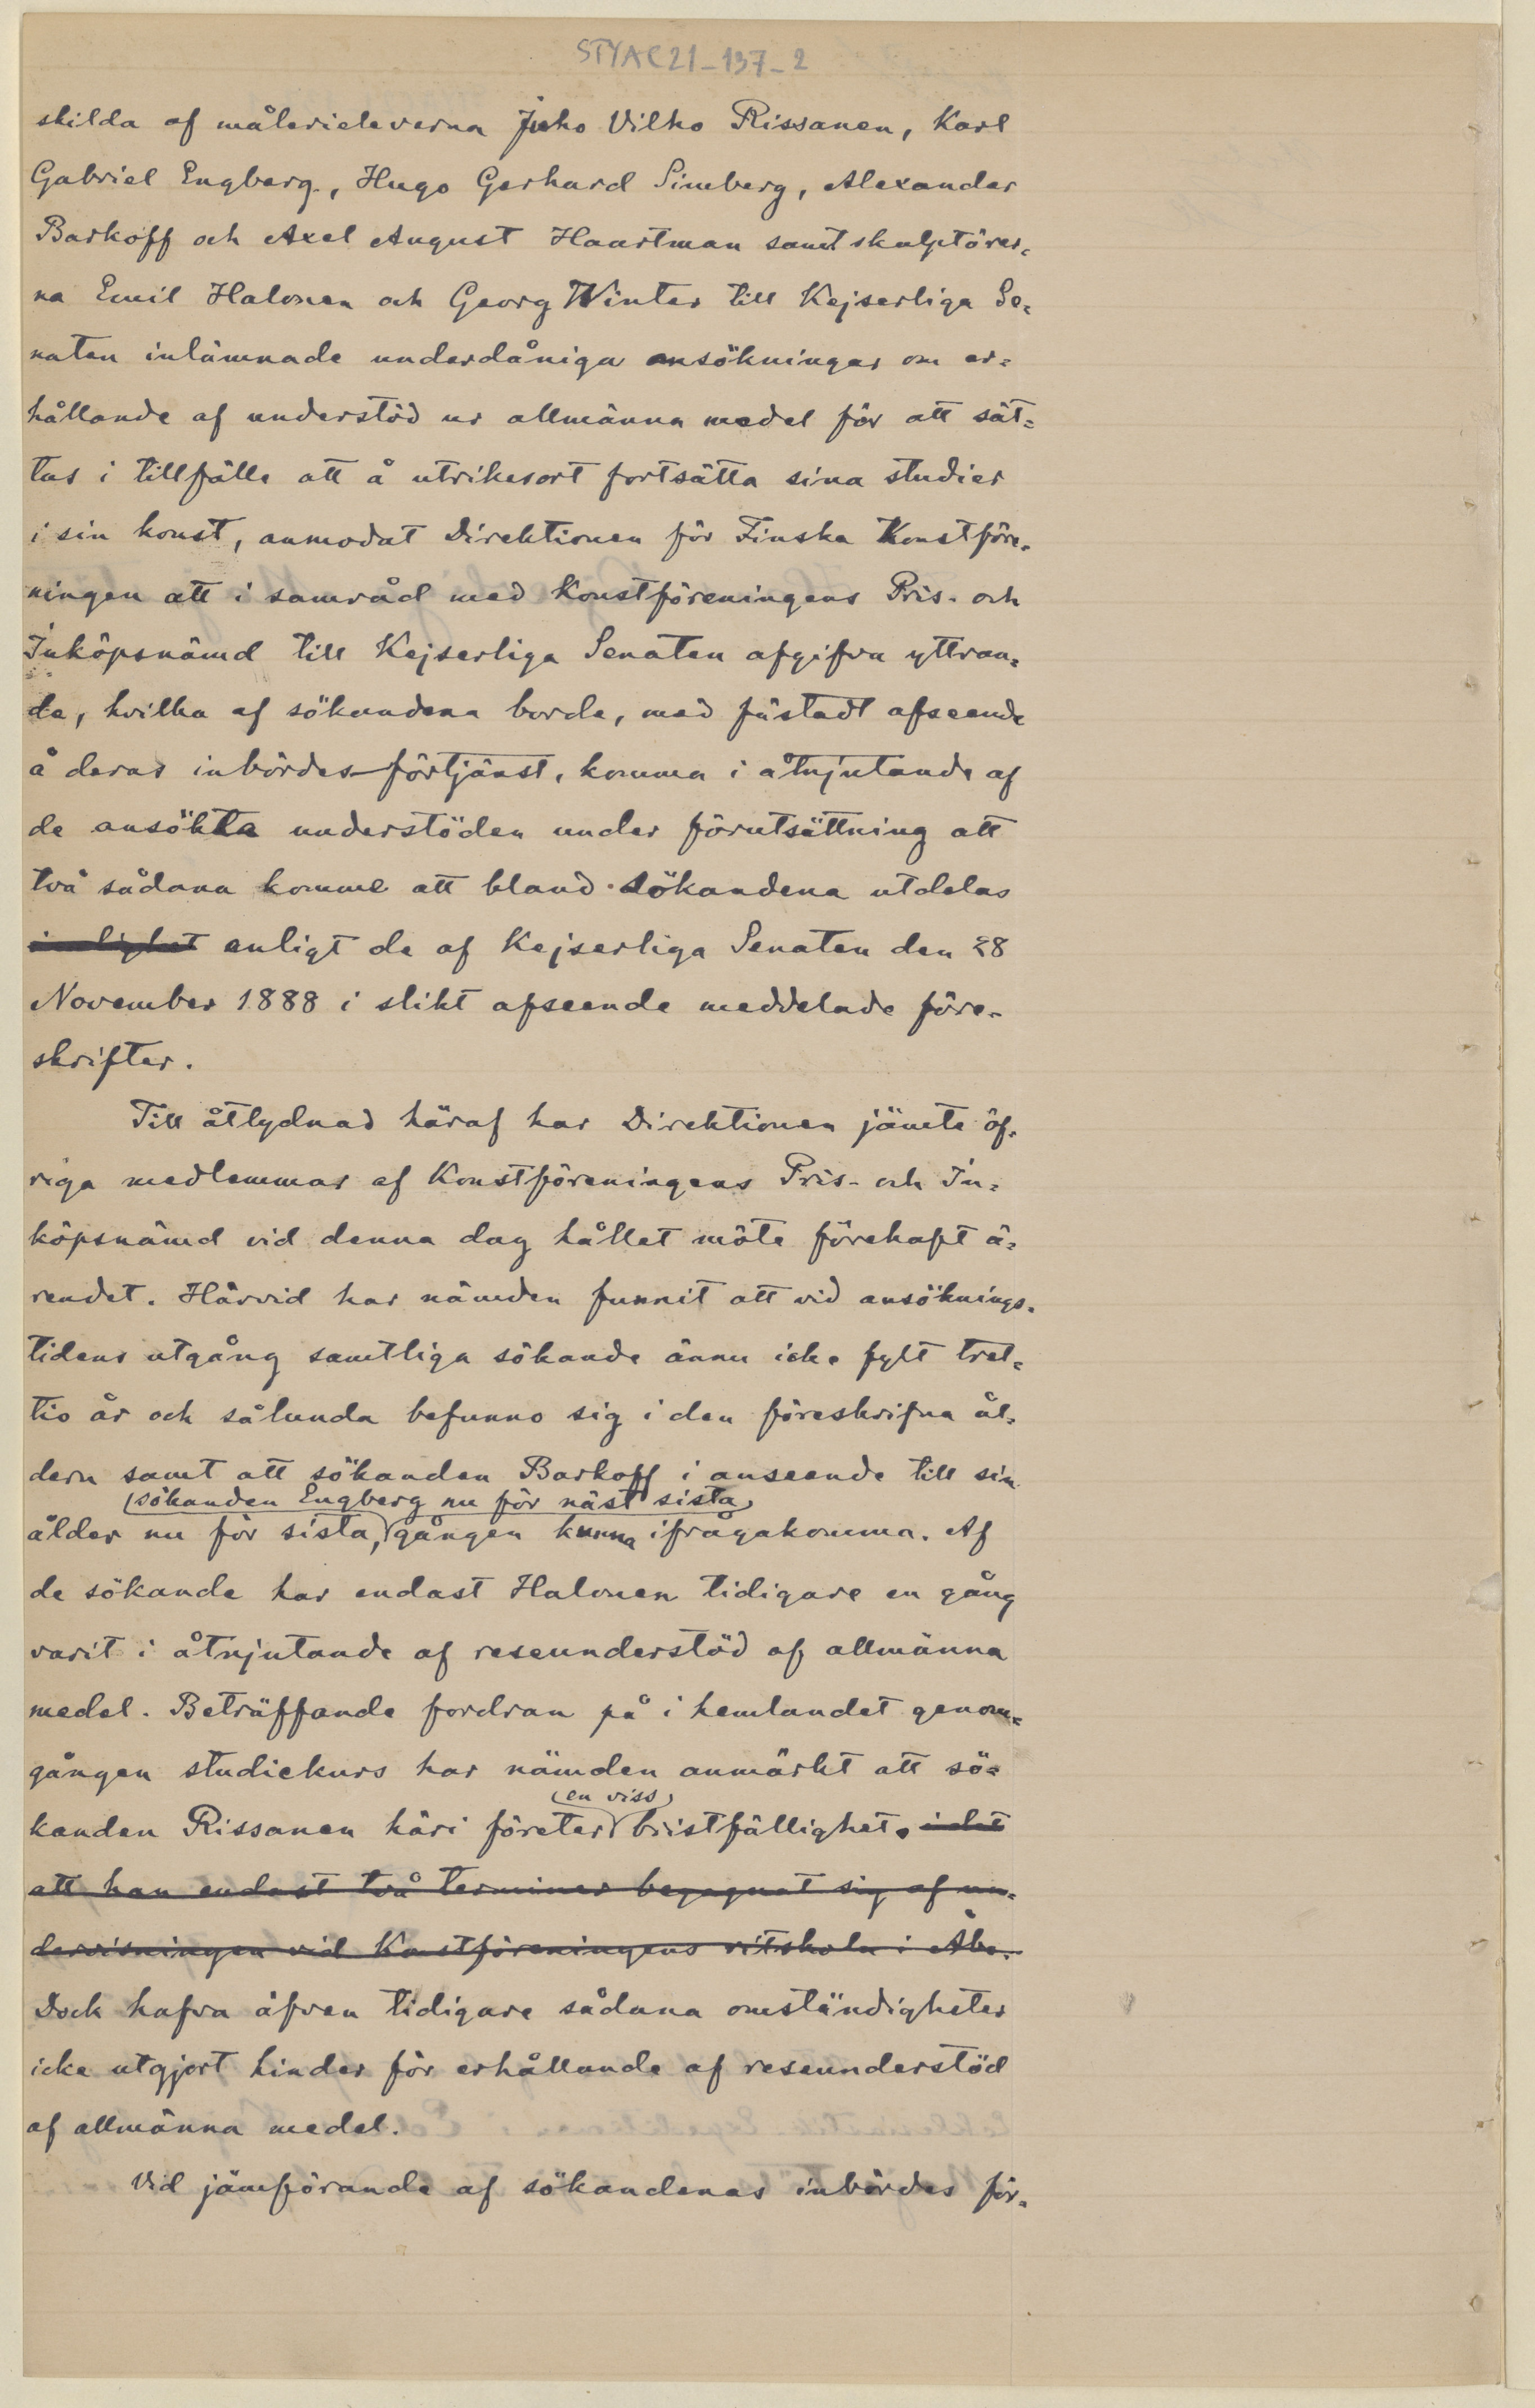 STYAC21_137_2
skilda af målerieleverna Juho Vilho Rissanen, Karl
Gabriel Engberg, Hugo Gerhard Simberg, Alexander
Barkoff och Axel August Haartman samt skulptörer-
na Emil Halonen och Georg Winter till Kejserliga Se-
naten inlämnade underdåniga ansökningar om er-
hållande af understöd ur allmänna medel för att sät-
tas i tillfälle att å utrikesort fortsätta sina studier
i sin konst, anmodat Direktionen för Finska Konstföre-
ningen att i samråd med Konstföreningens Pris- och
Inköpsnämd till Kejserliga Senaten afgifva yttran-
de, hvilka af sökandena borde, med fästadt afseende
å deras inbördes förtjänst, komma i åtnjutande af
de ansökta understöden under förutsättning att
två sådana komme att bland sökandena utdelas
i enlighet enligt de af Kejserliga Senaten den 28
November 1888 i slikt afseende meddelade före-
skrifter.
Till åtlydnad häraf har Direktionen jämte öf-
riga medlemmar af Konstföreningens Pris- och In-
köpsnämd vid denna dag hållet möte förehaft ä-
rendet. Härvid har nämden funnit att vid ansöknings-
tidens utgång samtliga sökande ännu icke fylt tret-
tio år och sålunda befunno sig i den föreskrifna ål-
dern samt att sökanden Barkoff i anseende till sin
sökanden Engberg nu för näst sista
ålder nu för sista, gången kunna ifrågakomma. Af
de sökande har endast Halonen tidigare en gång
varit i åtnjutande af reseunderstöd af allmänna
medel. Beträffande fordran på i hemlandet genom-
gången studiekurs har nämden anmärkt att sö-
en viss
kanden Rissanen häri företer bristfällighet. i det
att han endast två terminer begagnat sig af un-
dervisningen vid Konstföreningens ritskola i Åbo.
Dock hafva äfven tidigare sådana omständigheter
icke utgjort hinder för erhållande af reseunderstöd
af allmänna medel.
Vid jämförande af sökandenas inbördes för-